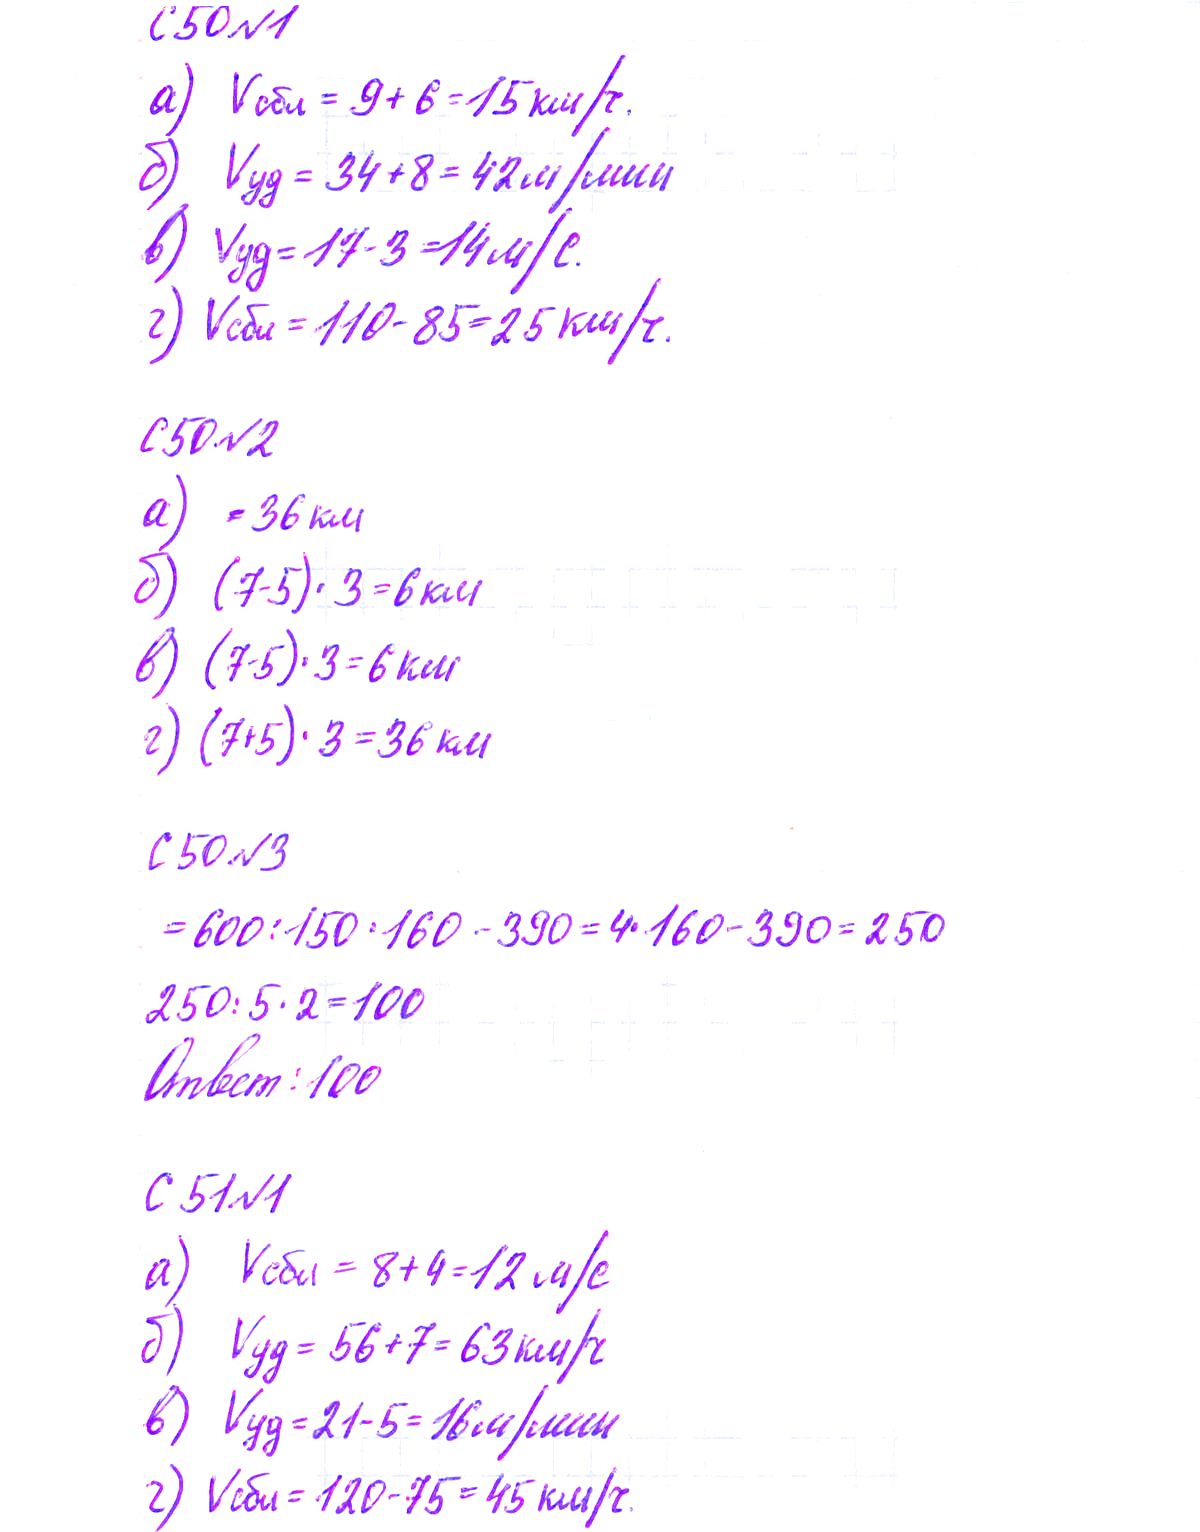 С50№1
а) Vсбл = 9+6=15км/ч.
б) Vуд = 34+8=42м/мин
в) Vуд=17-3=14м/с.
г) Vсбл=110-85=25км/ч.
С50№2
а) =36км
б) (7-5)·3=6км
в) (7-5)·3=6км
г) (7+5)·3=36км
С50№3
=600:150·160-390=4·160-390=250
250:5·2=100
Ответ:100
С51№1
а) Vсбл = 8+4=12м/с
б) Vуд=56+7=63км/ч
в) Vуд=21-5=16м/мин
г) Vсбл=120-75=45км/ч.